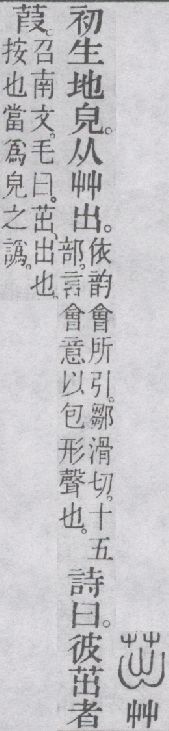 茁艸
初生地皃。从艸出。
依韵會所引。鄒滑切。十五
部。言會意以包形聲也。
詩曰。彼茁者
葭。
召南文。毛曰。茁、出也。
按也當爲皃之譌。